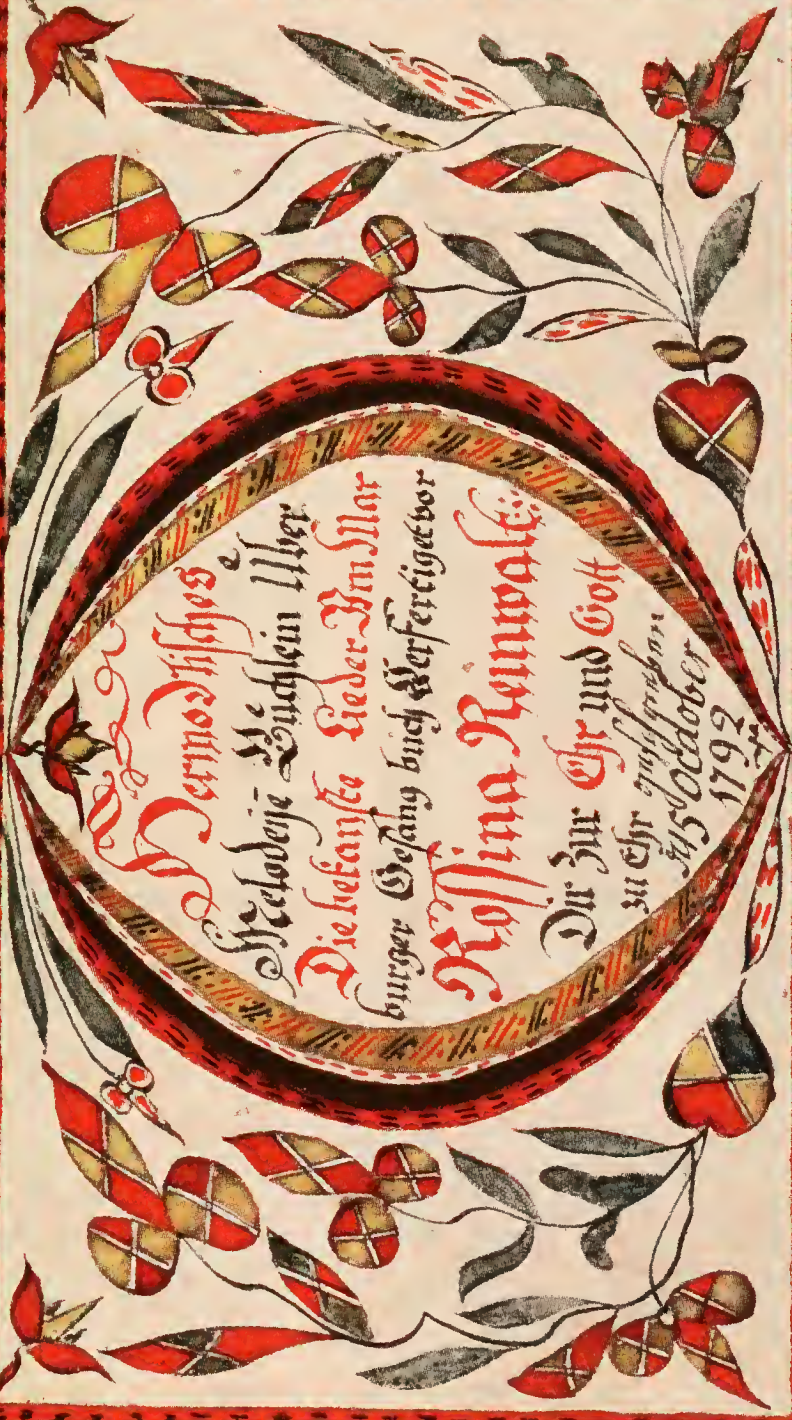 Hermodnisches
Melodeÿe Büchlein Uber
Die bekanste Lieder Vm Mar
burger Gesang buch Verfertiget vor
Rossina Reinwalt:
Dir zur Ehr und Gott
zu Ehr
15 Octdober
1792